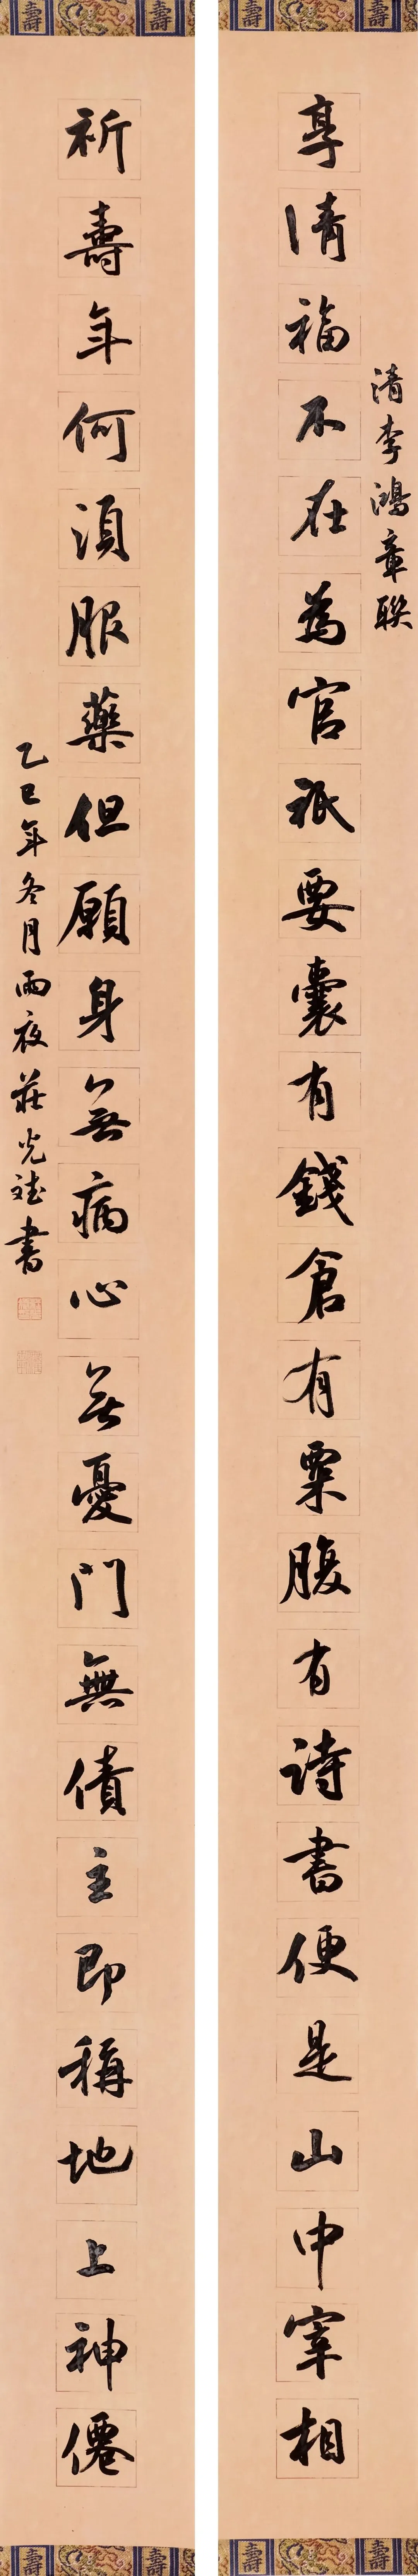 清李鴻章聯
享清福不在為官祇要囊有錢倉有粟腹有詩書便是山中宰相
祈壽年何須服藥但願身無病心無憂門無債主即稱地上神僊
乙巳年冬月雨夜莊光斌書